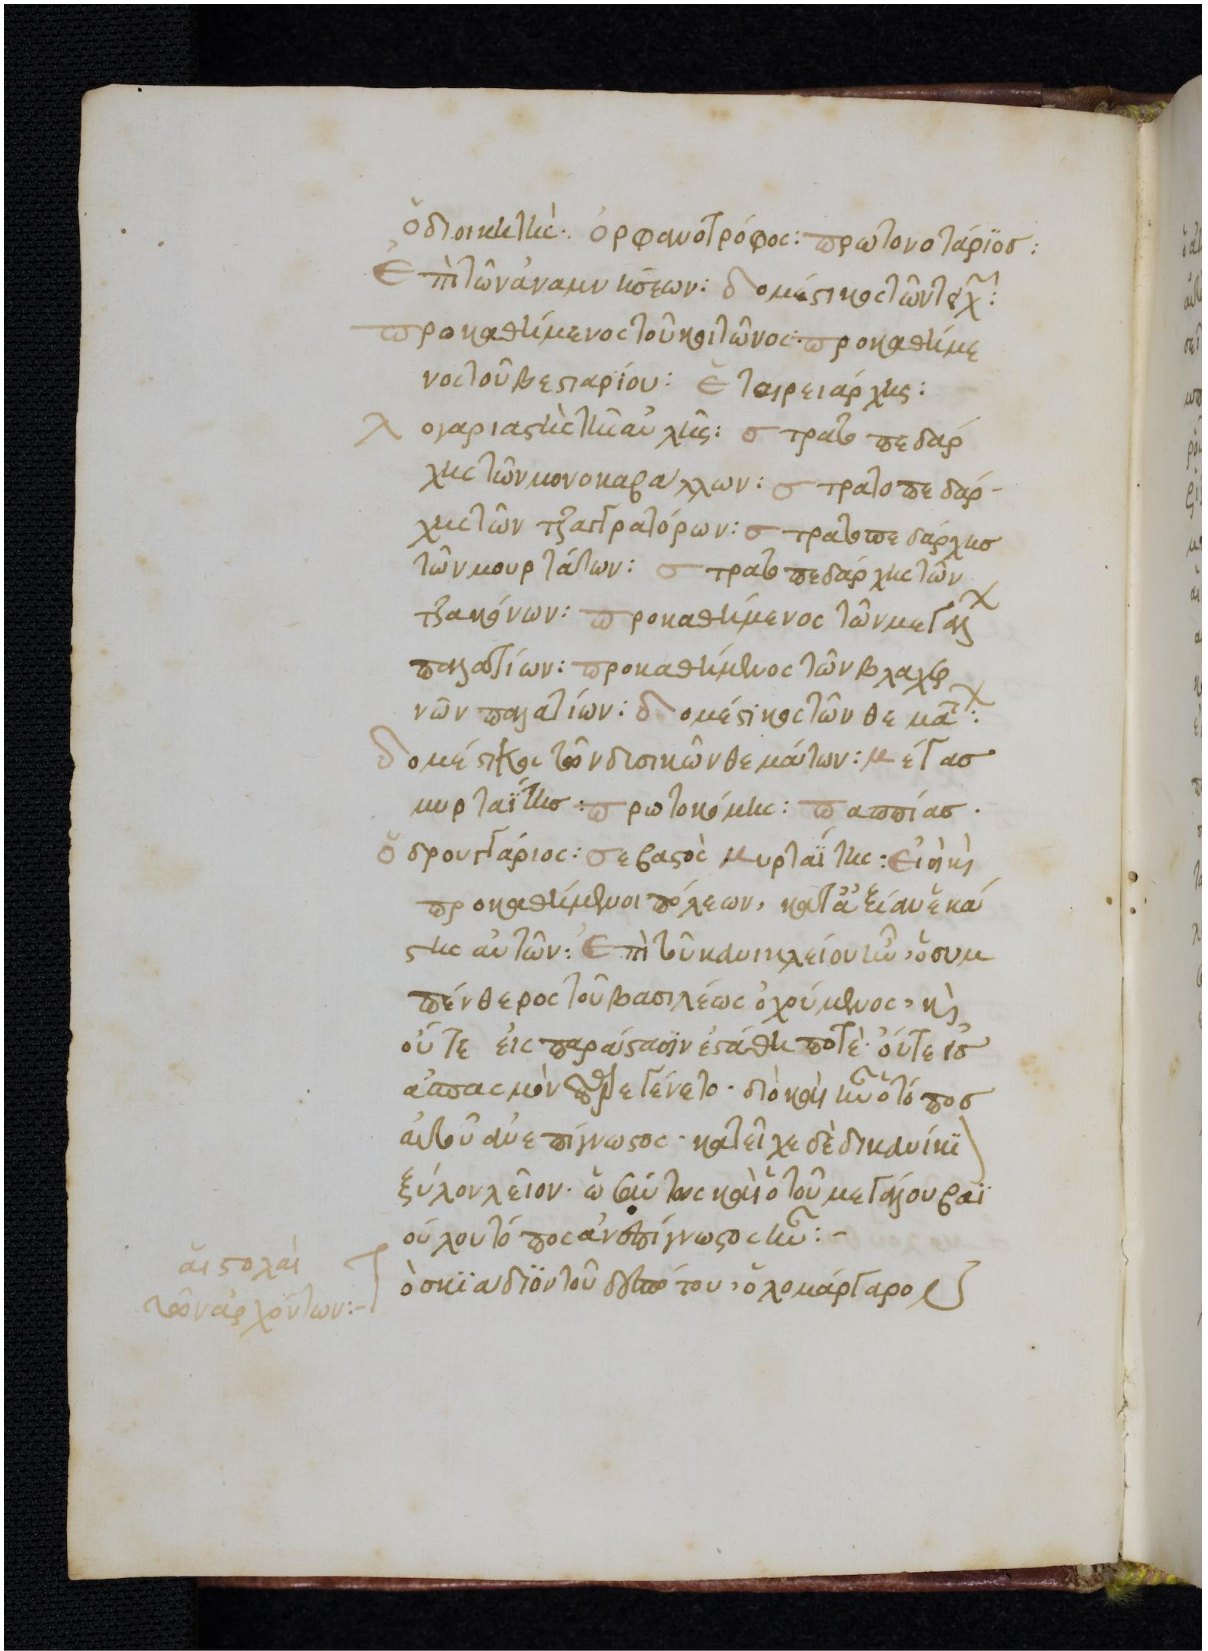 ὁ διοικητής· ὀρφανοτρόφος: πρωτονοτάριος:
Ἐπὶ τῶν ἀναμνήσεων: δομέστικος τῶν τειχ:
προκαθήμενος τοῦ κοιτῶνος: προκαθήμε
νος τοῦ βεστιαρίου: ἑταιρειάρχης:
λογαριαστὴς τῆς αὐλῆς: στρατοπεδάρ
χης τῶν μονοκαβάλλων: στρατοπεδάρ-
χης τῶν τζαγγρατόρων: στρατοπεδάρχης
τῶν μουρτάτων: στρατοπεδάρχης τῶν
τζακόνων: προκαθήμενος τῶν μεγάλ
παλατίων: προκαθήμενος τῶν βλαχερ
νῶν παλατίων: δομέστικος τῶν θεμάτ:
δομέστικοι τῶν δυτικῶν θεμάτων: μέγας
μυρταΐτης: πρωτοκόμης: παππίας·
ὁ δρουγγάριος: σεβαστὸς μυρταΐτης: Εἰσὶ καὶ
προκαθήμενοι πόλεων, κατὰ ἀξίαν ἑκά
στης αὐτῶν: Ἐπὶ τοῦ κανικλείου ἦν, ὁ συμ
πένθερος τοῦ βασιλέως ὁ χούμνος, καὶ
οὔτε εἰς παράστασιν ἐστάθη ποτὲ· οὔτε εἰς
ἀσπασμὸν ἐγένετο· διὸ καὶ ἦν ὁ τόπος
αὐτοῦ ἀνεπίγνωστος· κατεῖχε δὲ δικανίκι
ξύλον λεῖον· ὡσαύτως καὶ ὁ τοῦ μεγάλου βαϊ
ούλου τόπος ἀνεπίγνωστος ἦν:-
αἱ στολαὶ
τῶν ἀρχόντων:-
ὁ σκιάδιον τοῦ δεσπότου, ὁλομάργαρο